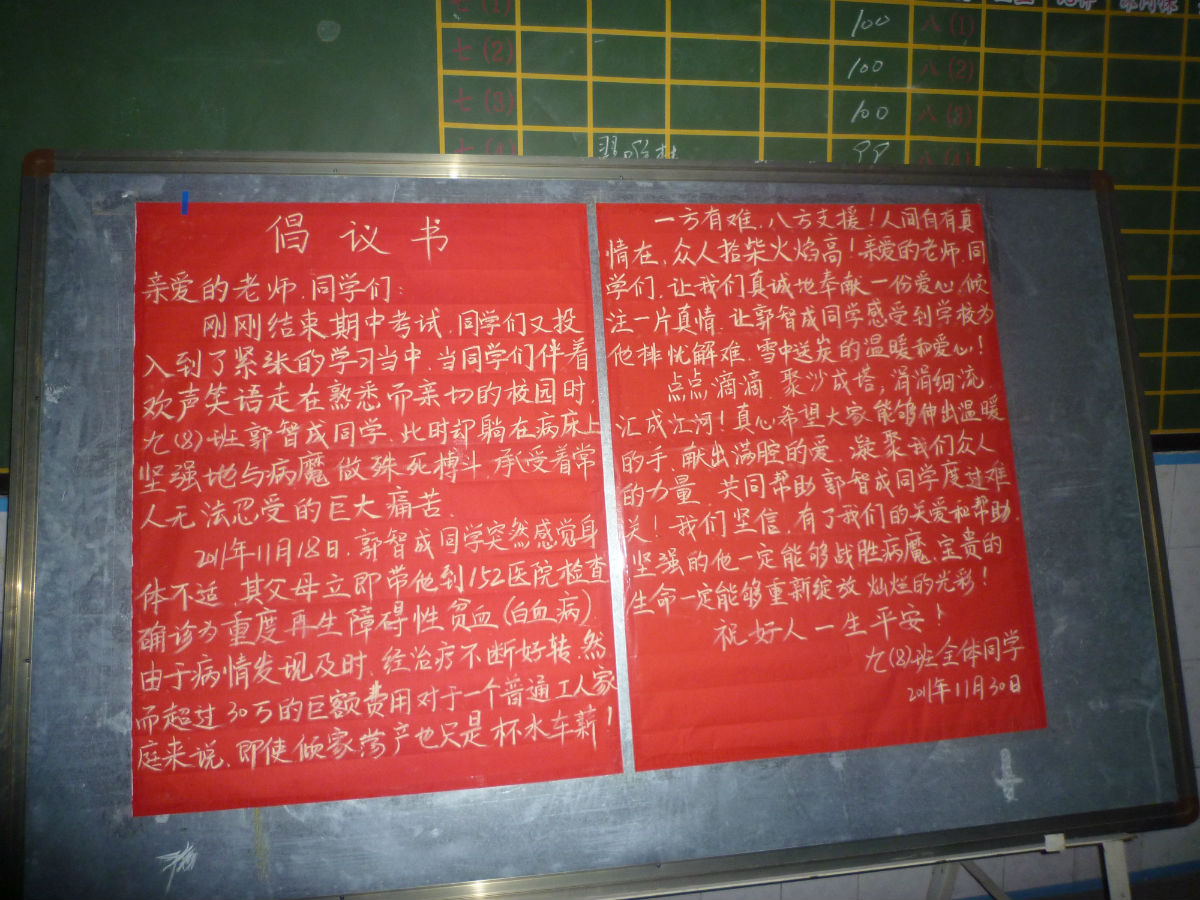 七(1)
100
八(1)
七(2)
100
八(2)
七(3)
100
八(3)
七(4)
99
八(4)
倡议书
亲爱的老师、同学们:
刚刚结束期中考试,同学们又投
入到了紧张的学习当中,当同学们伴着
欢声笑语走在熟悉而亲切的校园时,
九(8)班郭智成同学,此时却躺在病床上
坚强地与病魔做殊死搏斗,承受着常
人无法忍受的巨大痛苦.
2011年11月18日,郭智成同学突然感觉身
体不适,其父母立即带他到152医院检查
确诊为重度再生障碍性贫血(白血病)
由于病情发现及时,经治疗不断好转,然
而超过30万的巨额费用对于一个普通工人家
庭来说,即使倾家荡产也只是杯水车薪!
一方有难,八方支援!人间自有真
情在,众人拾柴火焰高!亲爱的老师,同
学们,让我们真诚地奉献一份爱心,倾
注一片真情,让郭智成同学感受到学校为
他排忧解难,雪中送炭的温暖和爱心!
点点滴滴,聚沙成塔,涓涓细流,
汇成江河!真心希望大家能够伸出温暖
的手,献出满腔的爱,凝聚我们众人
的力量,共同帮助郭智成同学度过难
关!我们坚信,有了我们的关爱和帮助,
坚强的他一定能够战胜病魔,宝贵的
生命一定能够重新绽放灿烂的光彩!
祝好人一生平安!
九(8)班全体同学
2011年11月30日